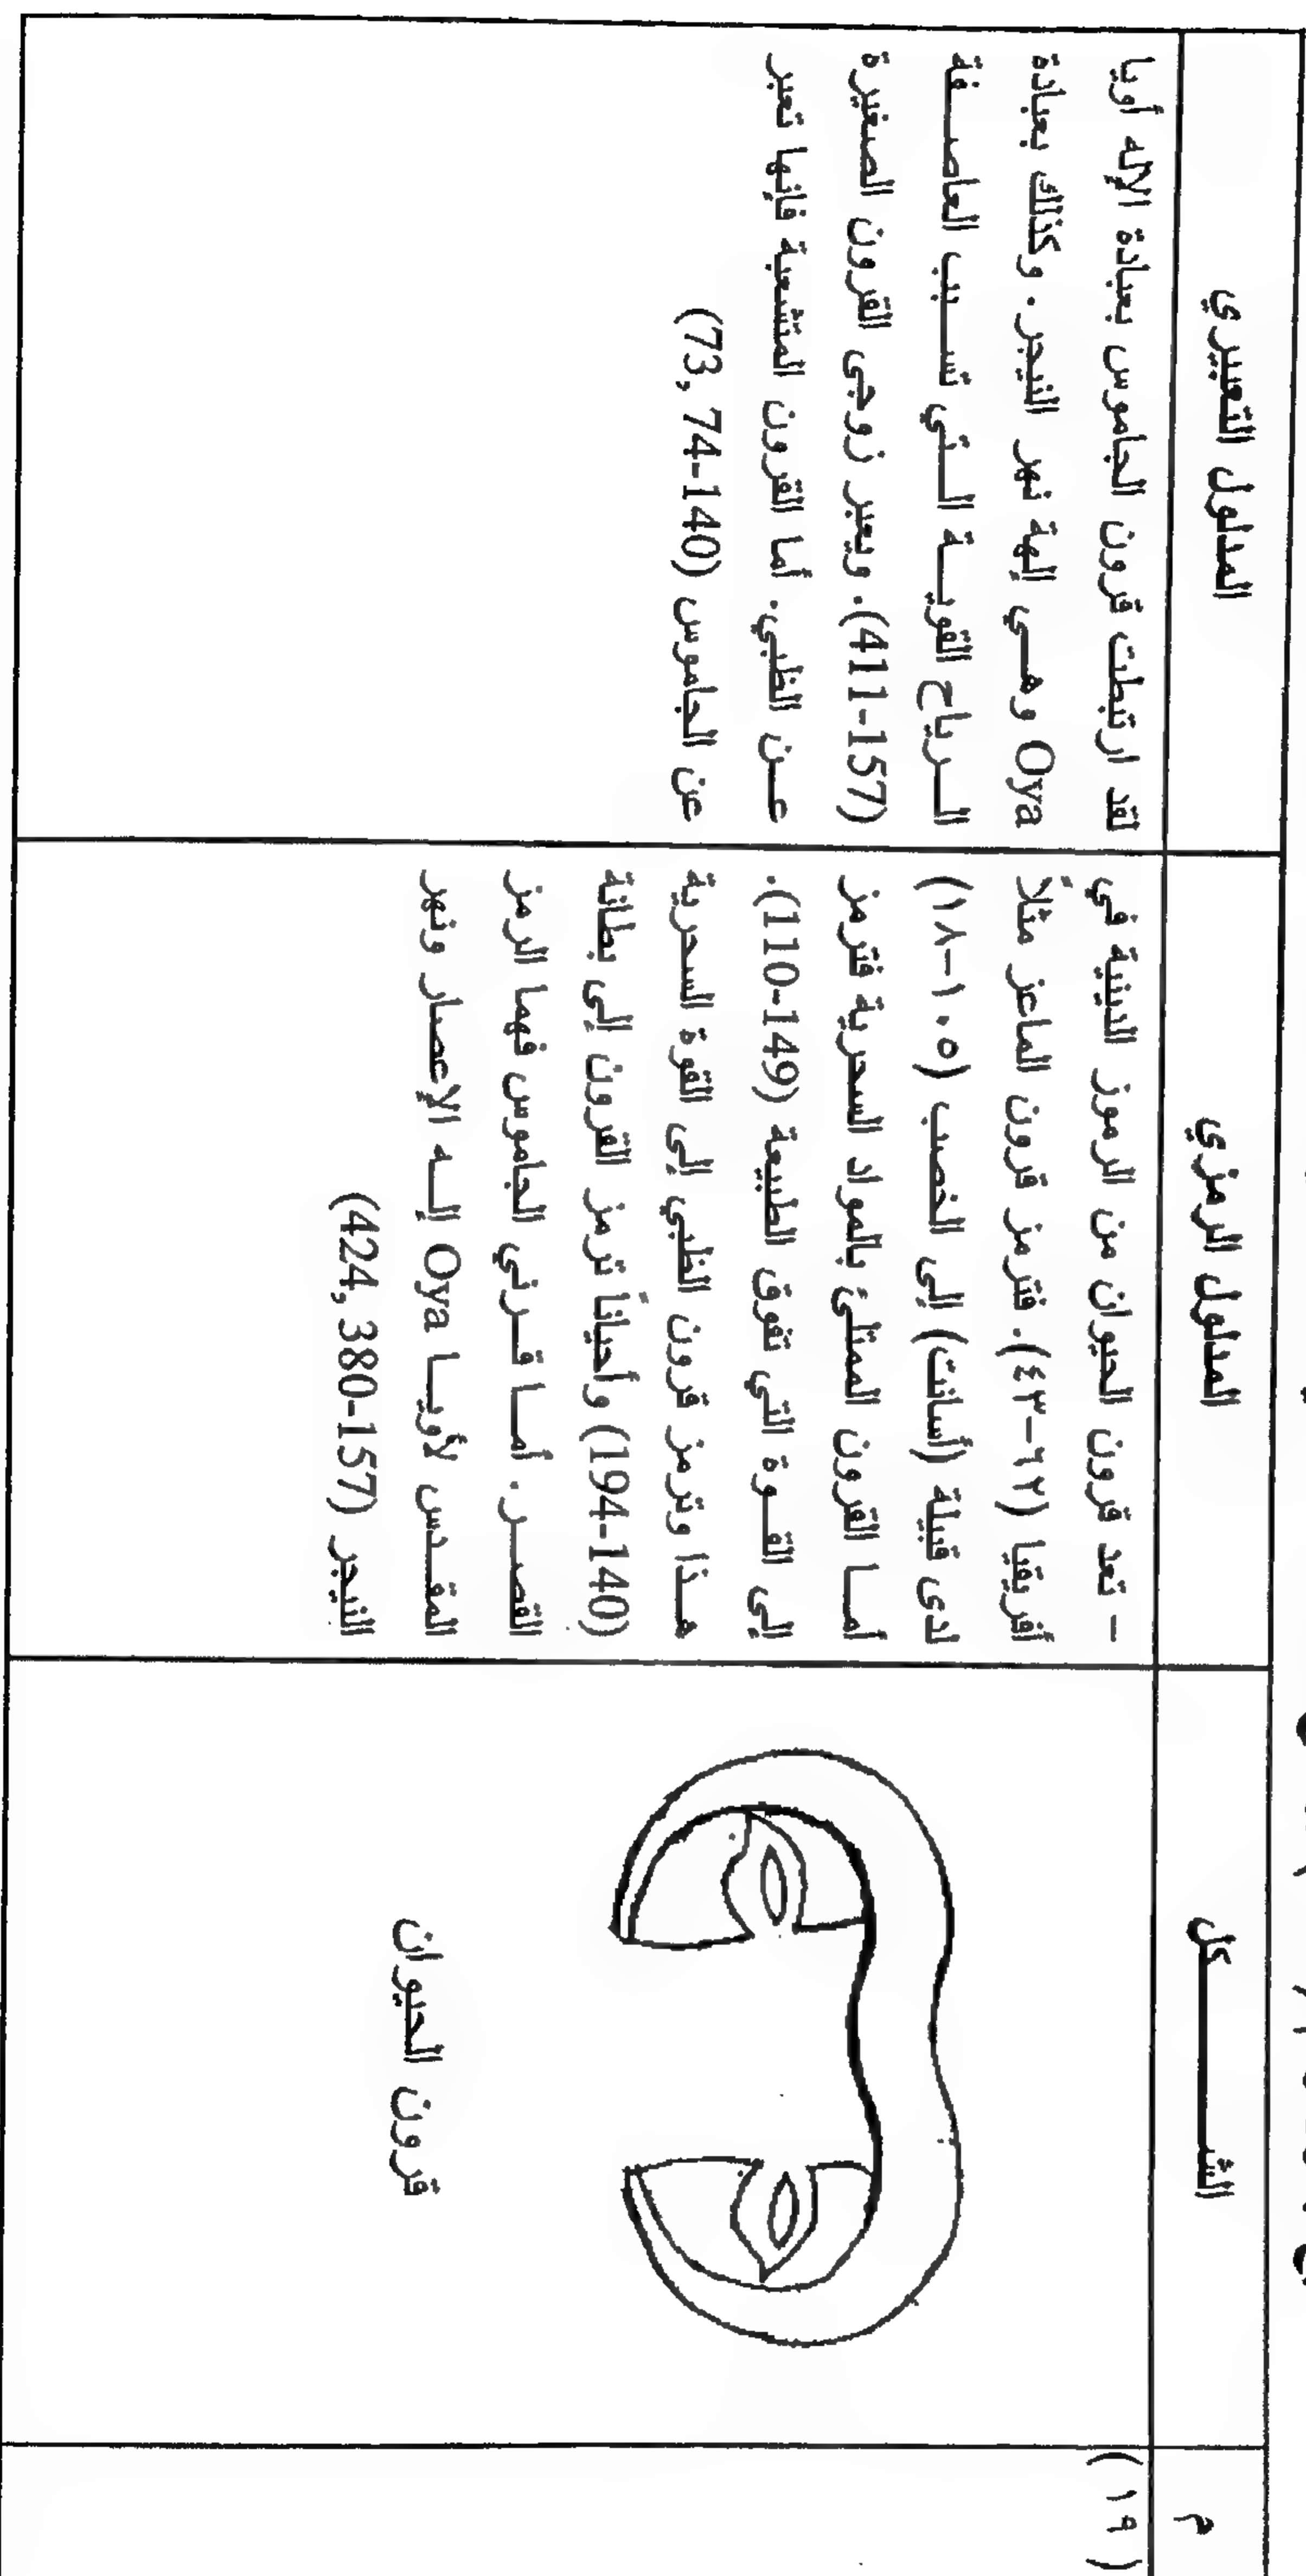 م
الشكل
المدلول الرمزي
المدلول التعبيري
(١٩)
قرون الحيوان
- تعد قرون الحيوان من الرموز الدينية في
أفريقيا (٦٢-٤٣). فترمز قرون الماعز مثلاً
لدى قبيلة (أسانت) إلى الخصب (١٠٥-١٨)
أما القرون الممتلئ بالمواد السحرية فترمز
إلى القوة التي تفوق الطبيعة (149-110).
هذا وترمز قرون الظبي إلى القوة السحرية
(140-194) وأحياناً ترمز القرون إلى بطانة
القصر. أما قرني الجاموس فهما الرمز
المقدس لأويا Oya إله الإعصار ونهر
النيجر (157-380 ,424)
لقد ارتبطت قرون الجاموس بعبادة الإله أويا
Oya وهي إلهة نهر النيجر. وكذلك بعبادة
الرياح القوية التي تسبب العاصفة
(157-411). ويعبر زوجى القرون الصغيرة
عن الظبي. أما القرون المتشعبة فإنها تعبر
عن الجاموس (140-74 ,73)